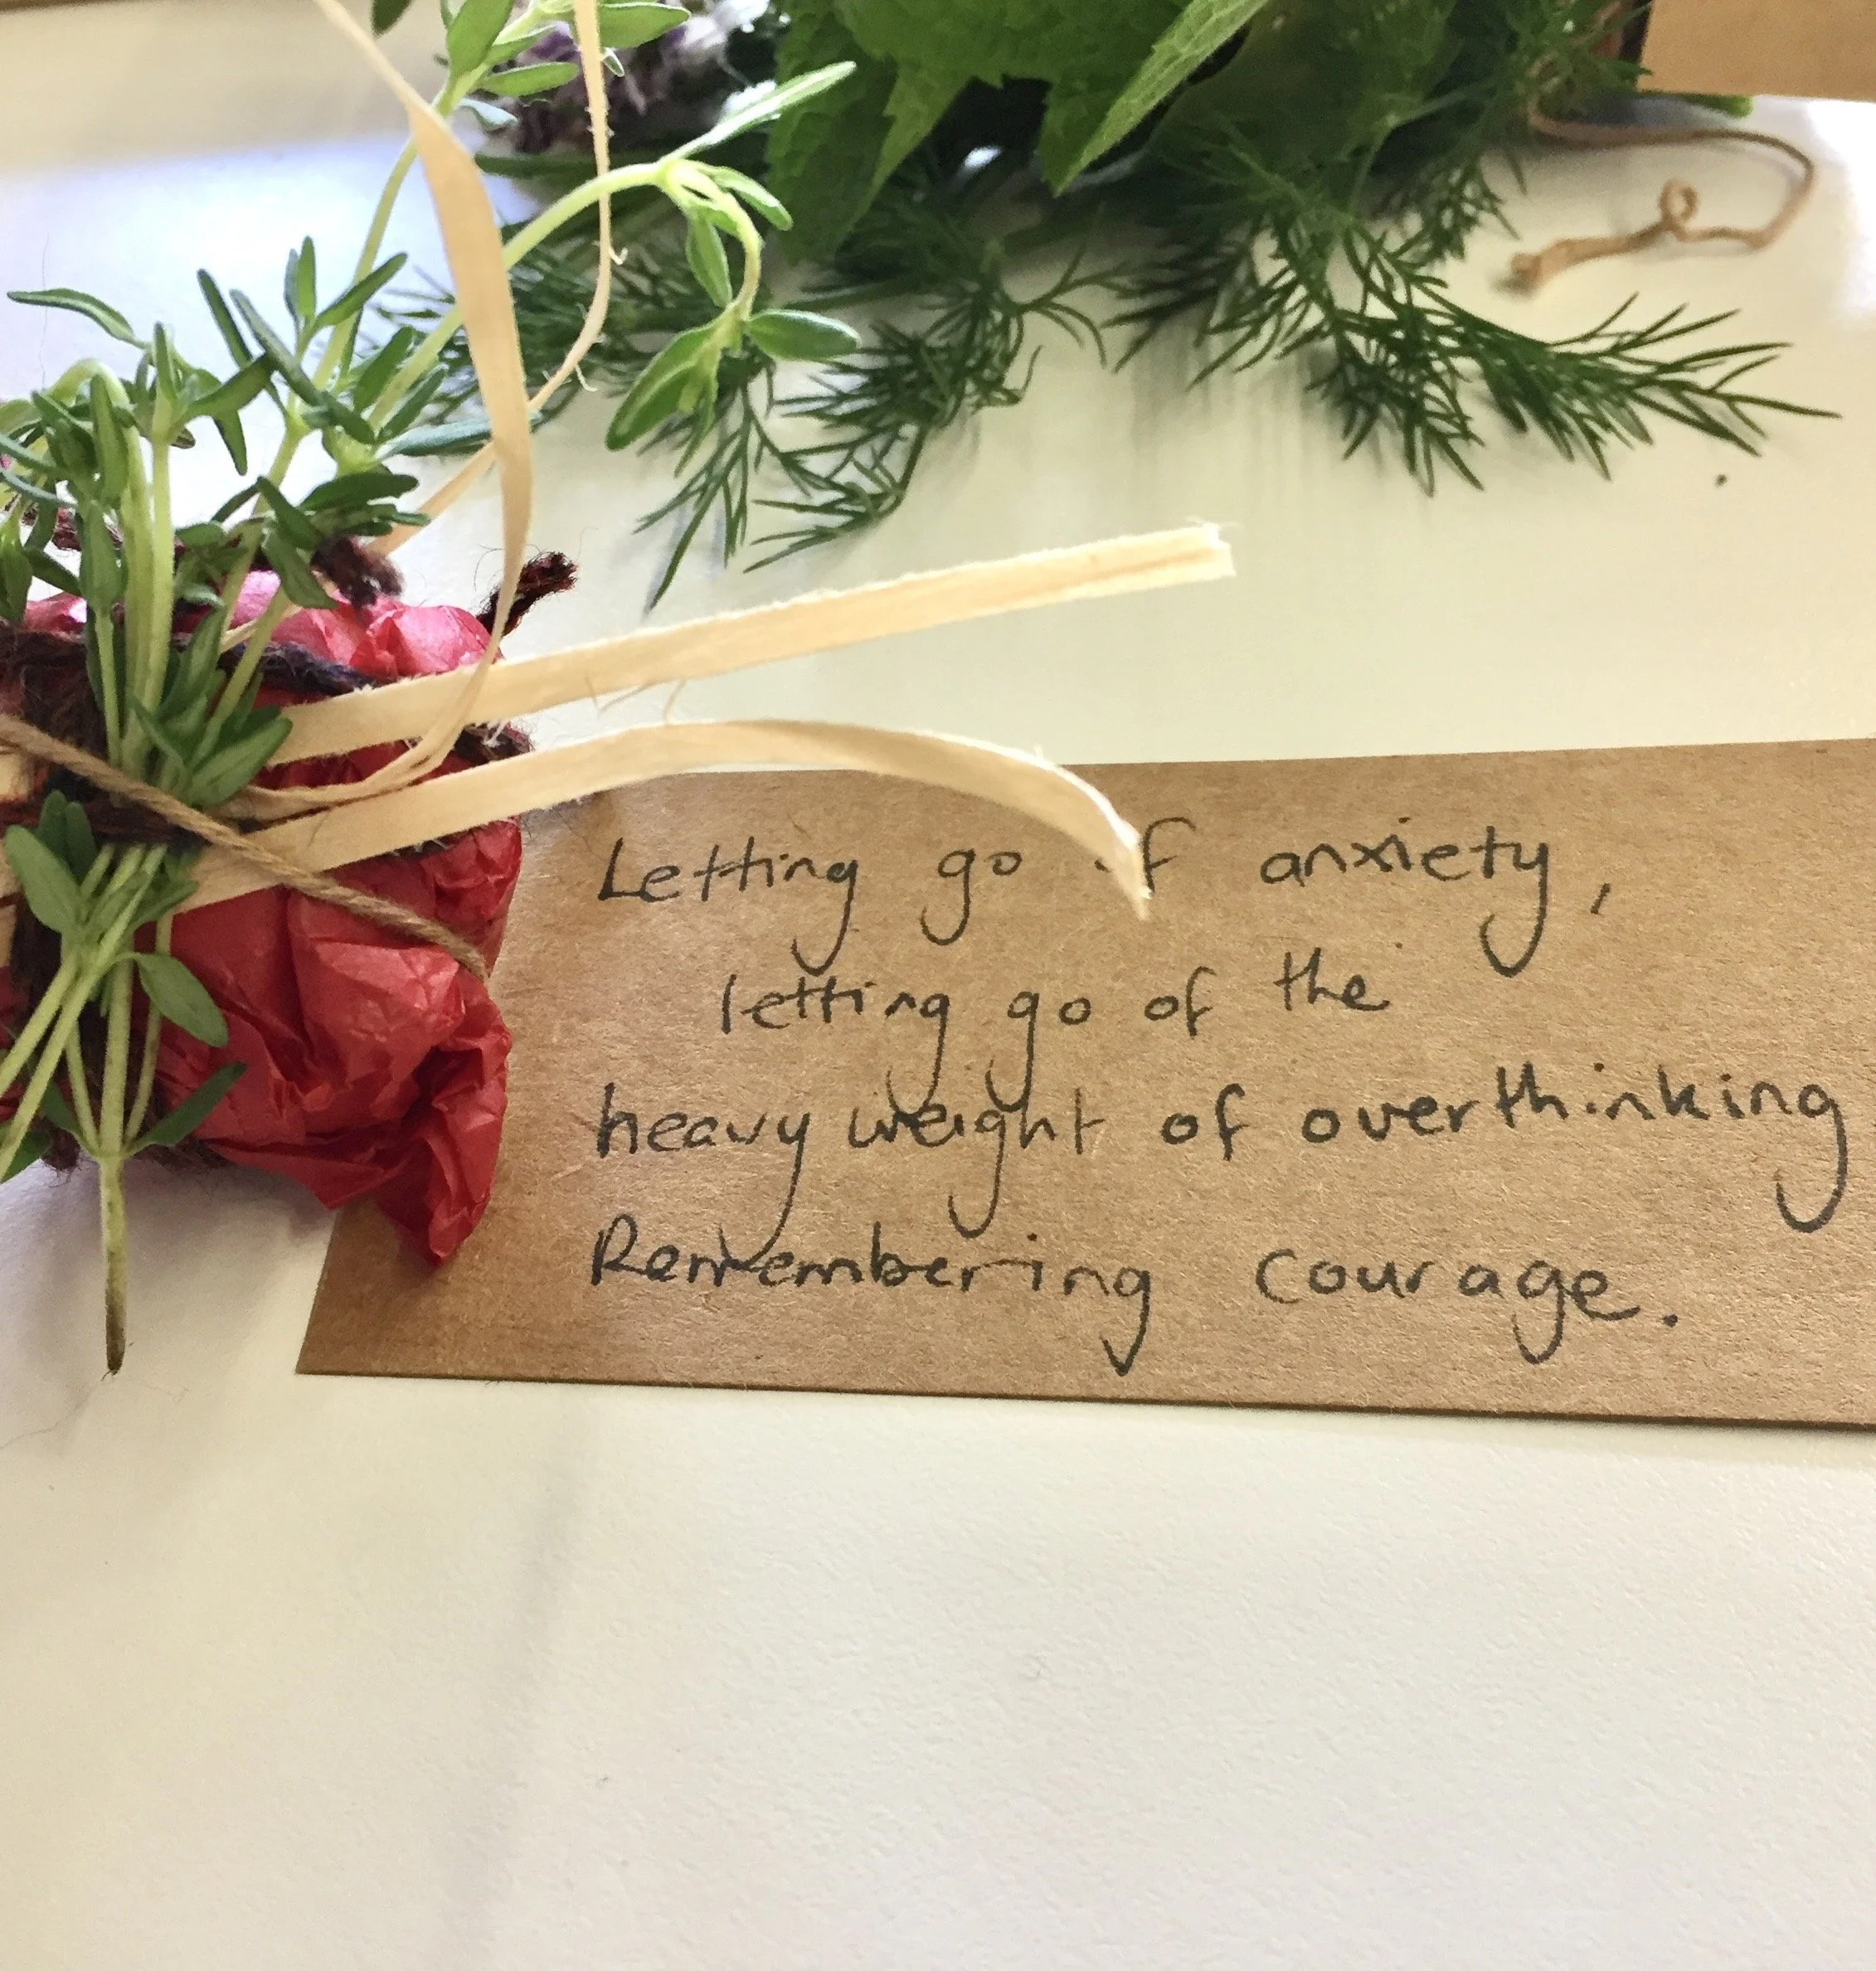 Letting go of anxiety,
letting go of the
heavy weight of overthinking
Remembering courage.